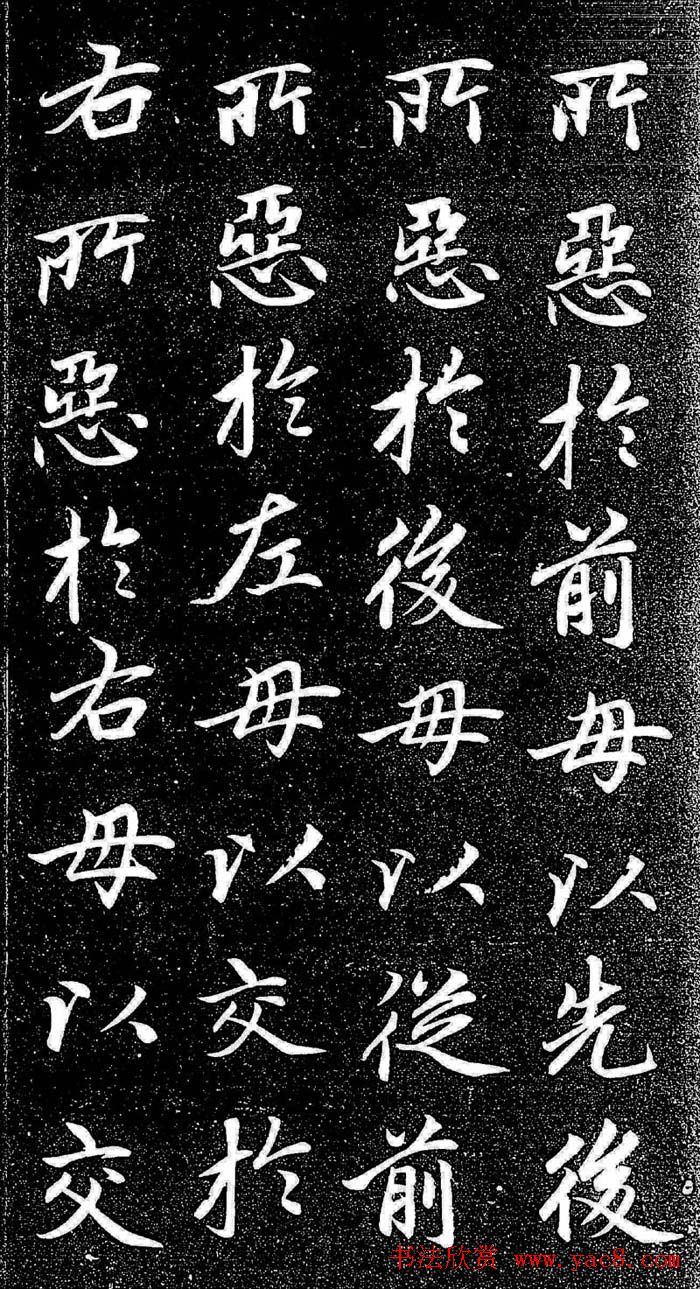 所惡於前毋以先後
所惡於後毋以從前
所惡於左毋以交於
右所惡於右毋以交
书法欣赏 www.yac8.com